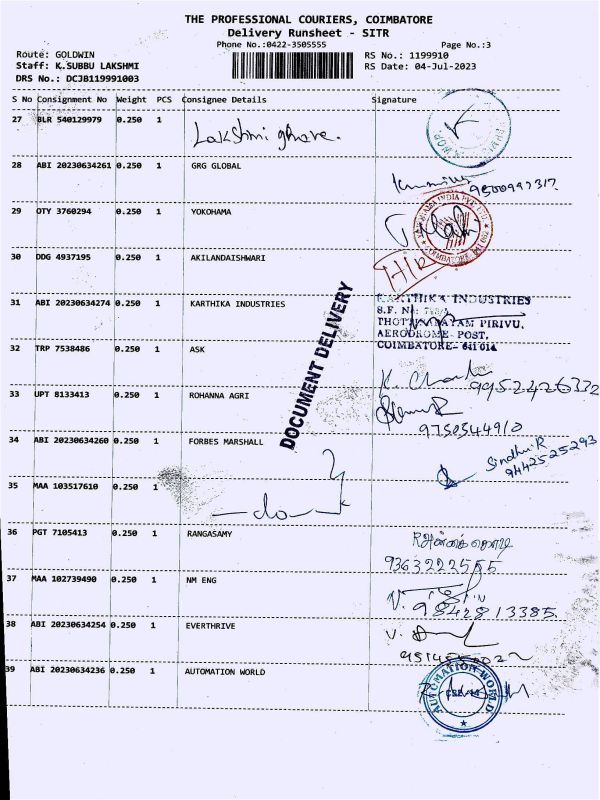 THE PROFESSIONAL COURIERS, COIMBATORE
Delivery Runsheet - SITR
Phone No.:0422-3505555
Page No.:3
Route: GOLDWIN
RS No.: 1199910
Staff: K.SUBBU LAKSHMI
RS Date: 04-Jul-2023
DRS No.: DCJB119991003
S No Consignment No Weight PCS Consignee Details Signature
27 BLR 540129979 0.250 1
Lakshmi
28 ABI 20230634261 0.250 1 GRG GLOBAL
9500997317
29 OTY 3760294 0.250 1 YOKOHAMA
30 DDG 4937195 0.250 1 AKILANDAISHWARI
H/R
DOCUMENT DELIVERY
31 ABI 20230634274 0.250 1 KARTHIKA INDUSTRIES
KARTHIKA INDUSTRIES
S.F. No:
PIRIVU,
AERODROME POST,
COIMBATORE- 641 014
32 TRP 7538486 0.250 1 ASK
9952426332
33 UPT 8133413 0.250 1 ROHANNA AGRI
9750544910
34 ABI 20230634260 0.250 1 FORBES MARSHALL
Sindhu R
9442525293
35 MAA 103517610 0.250 1
do
36 PGT 7105413 0.250 1 RANGASAMY
9363222555
37 MAA 102739490 0.250 1 NM ENG
9842813385
38 ABI 20230634254 0.250 1 EVERTHRIVE
39 ABI 20230634236 0.250 1 AUTOMATION WORLD
AUTOMATION WORLD